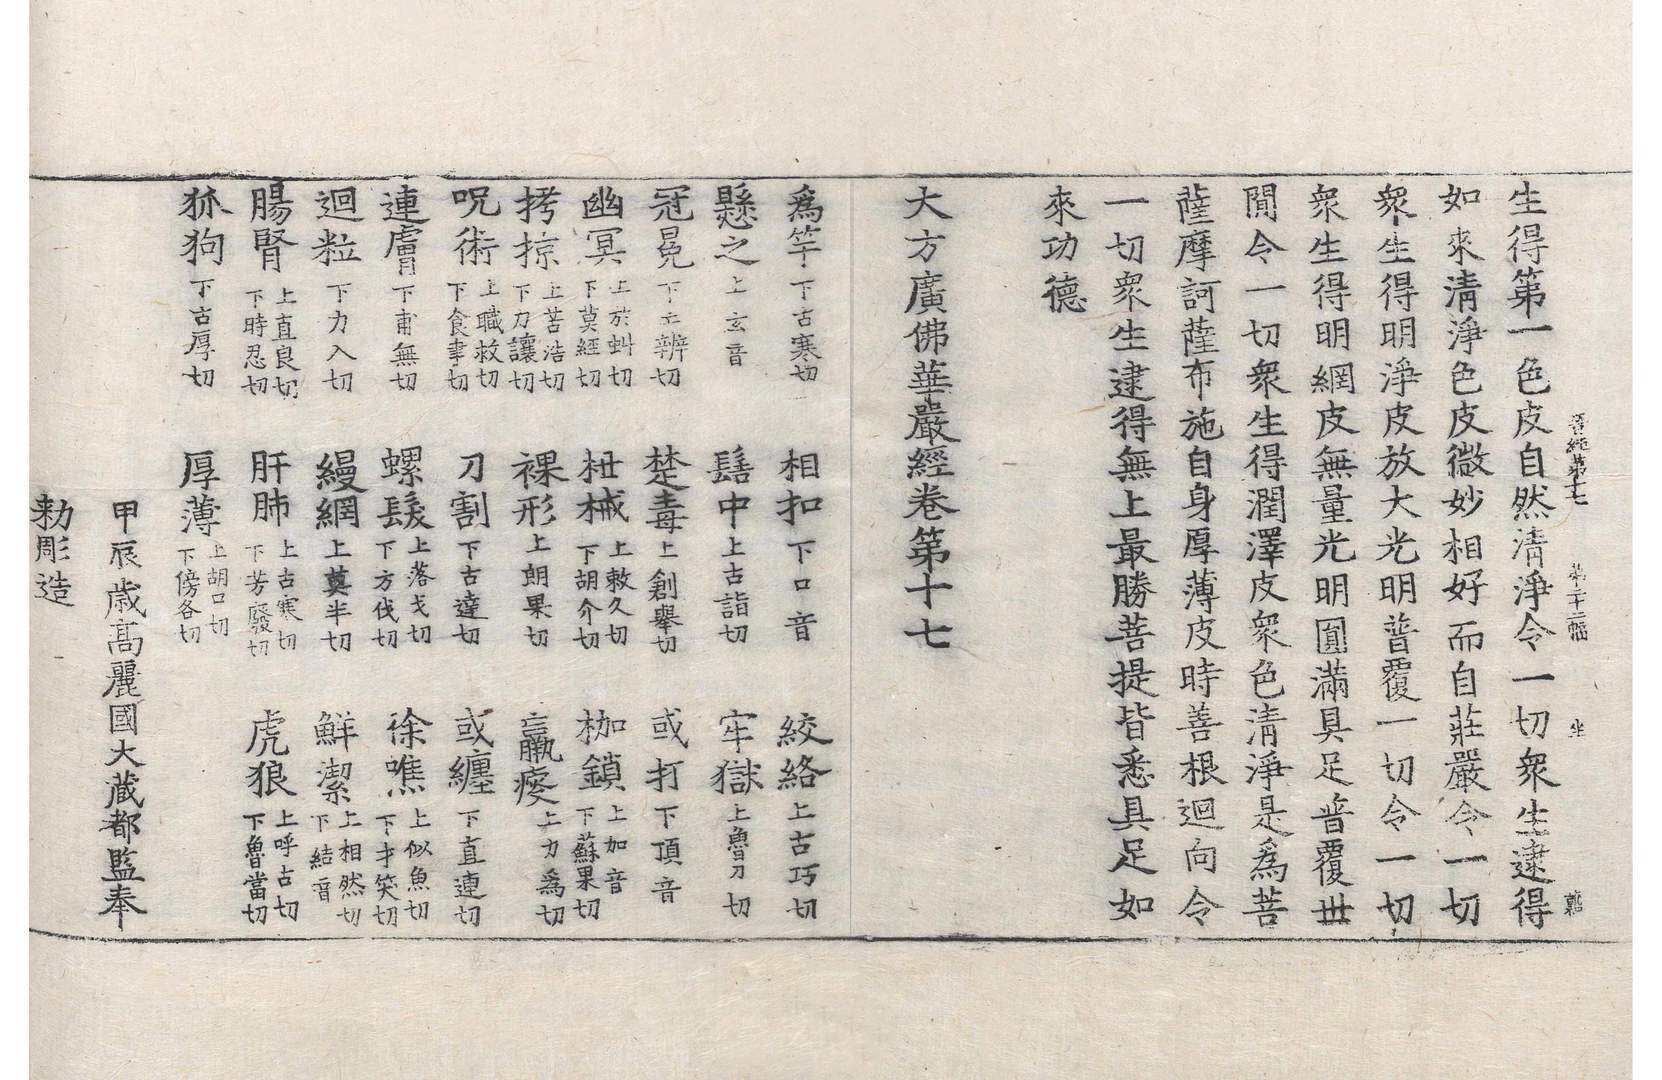 晋經第十七　第二十二幅　坐
生得第一色皮自然清淨令一切衆生逮得
如來清淨色皮微妙相好而自莊嚴令一切
衆生得明淨皮放大光明普覆一切令一切
衆生得明網皮無量光明圓滿具足普覆世
閒令一切衆生得潤澤皮衆色清淨是爲菩
薩摩訶薩布施自身厚薄皮時善根迴向令
一切衆生逮得無上最勝菩提皆悉具足如
來功德
大方廣佛華嚴經卷第十七
爲竿下古寒切　相扣下口音　絞絡上古巧切
懸之上玄音　髻中上古詣切　牢獄上魯刀切
冠冕下辨切　楚毒上創舉切　或打下頂音
幽冥上於虯切下莫經切　杻械上敕久切下胡介切　枷鎖上加音下蘇果切
拷掠上苦浩切下力讓切　裸形上朗果切　羸瘦上力爲切
呪術上職救切下食聿切　刀割下古達切　或纏下直連切
連膚下甫無切　螺髮上落戈切下方伐切　徐噍上似魚切下才笑切
迴粒下力入切　縵網上莫半切　鮮潔上相然切下結音
腸腎上直良切下時忍切　肝肺上古寒切下芳廢切　虎狼上呼古切下魯當切
狐狗下古厚切　厚薄上胡口切下傍各切
甲辰歲高麗國大藏都監奉
勅彫造